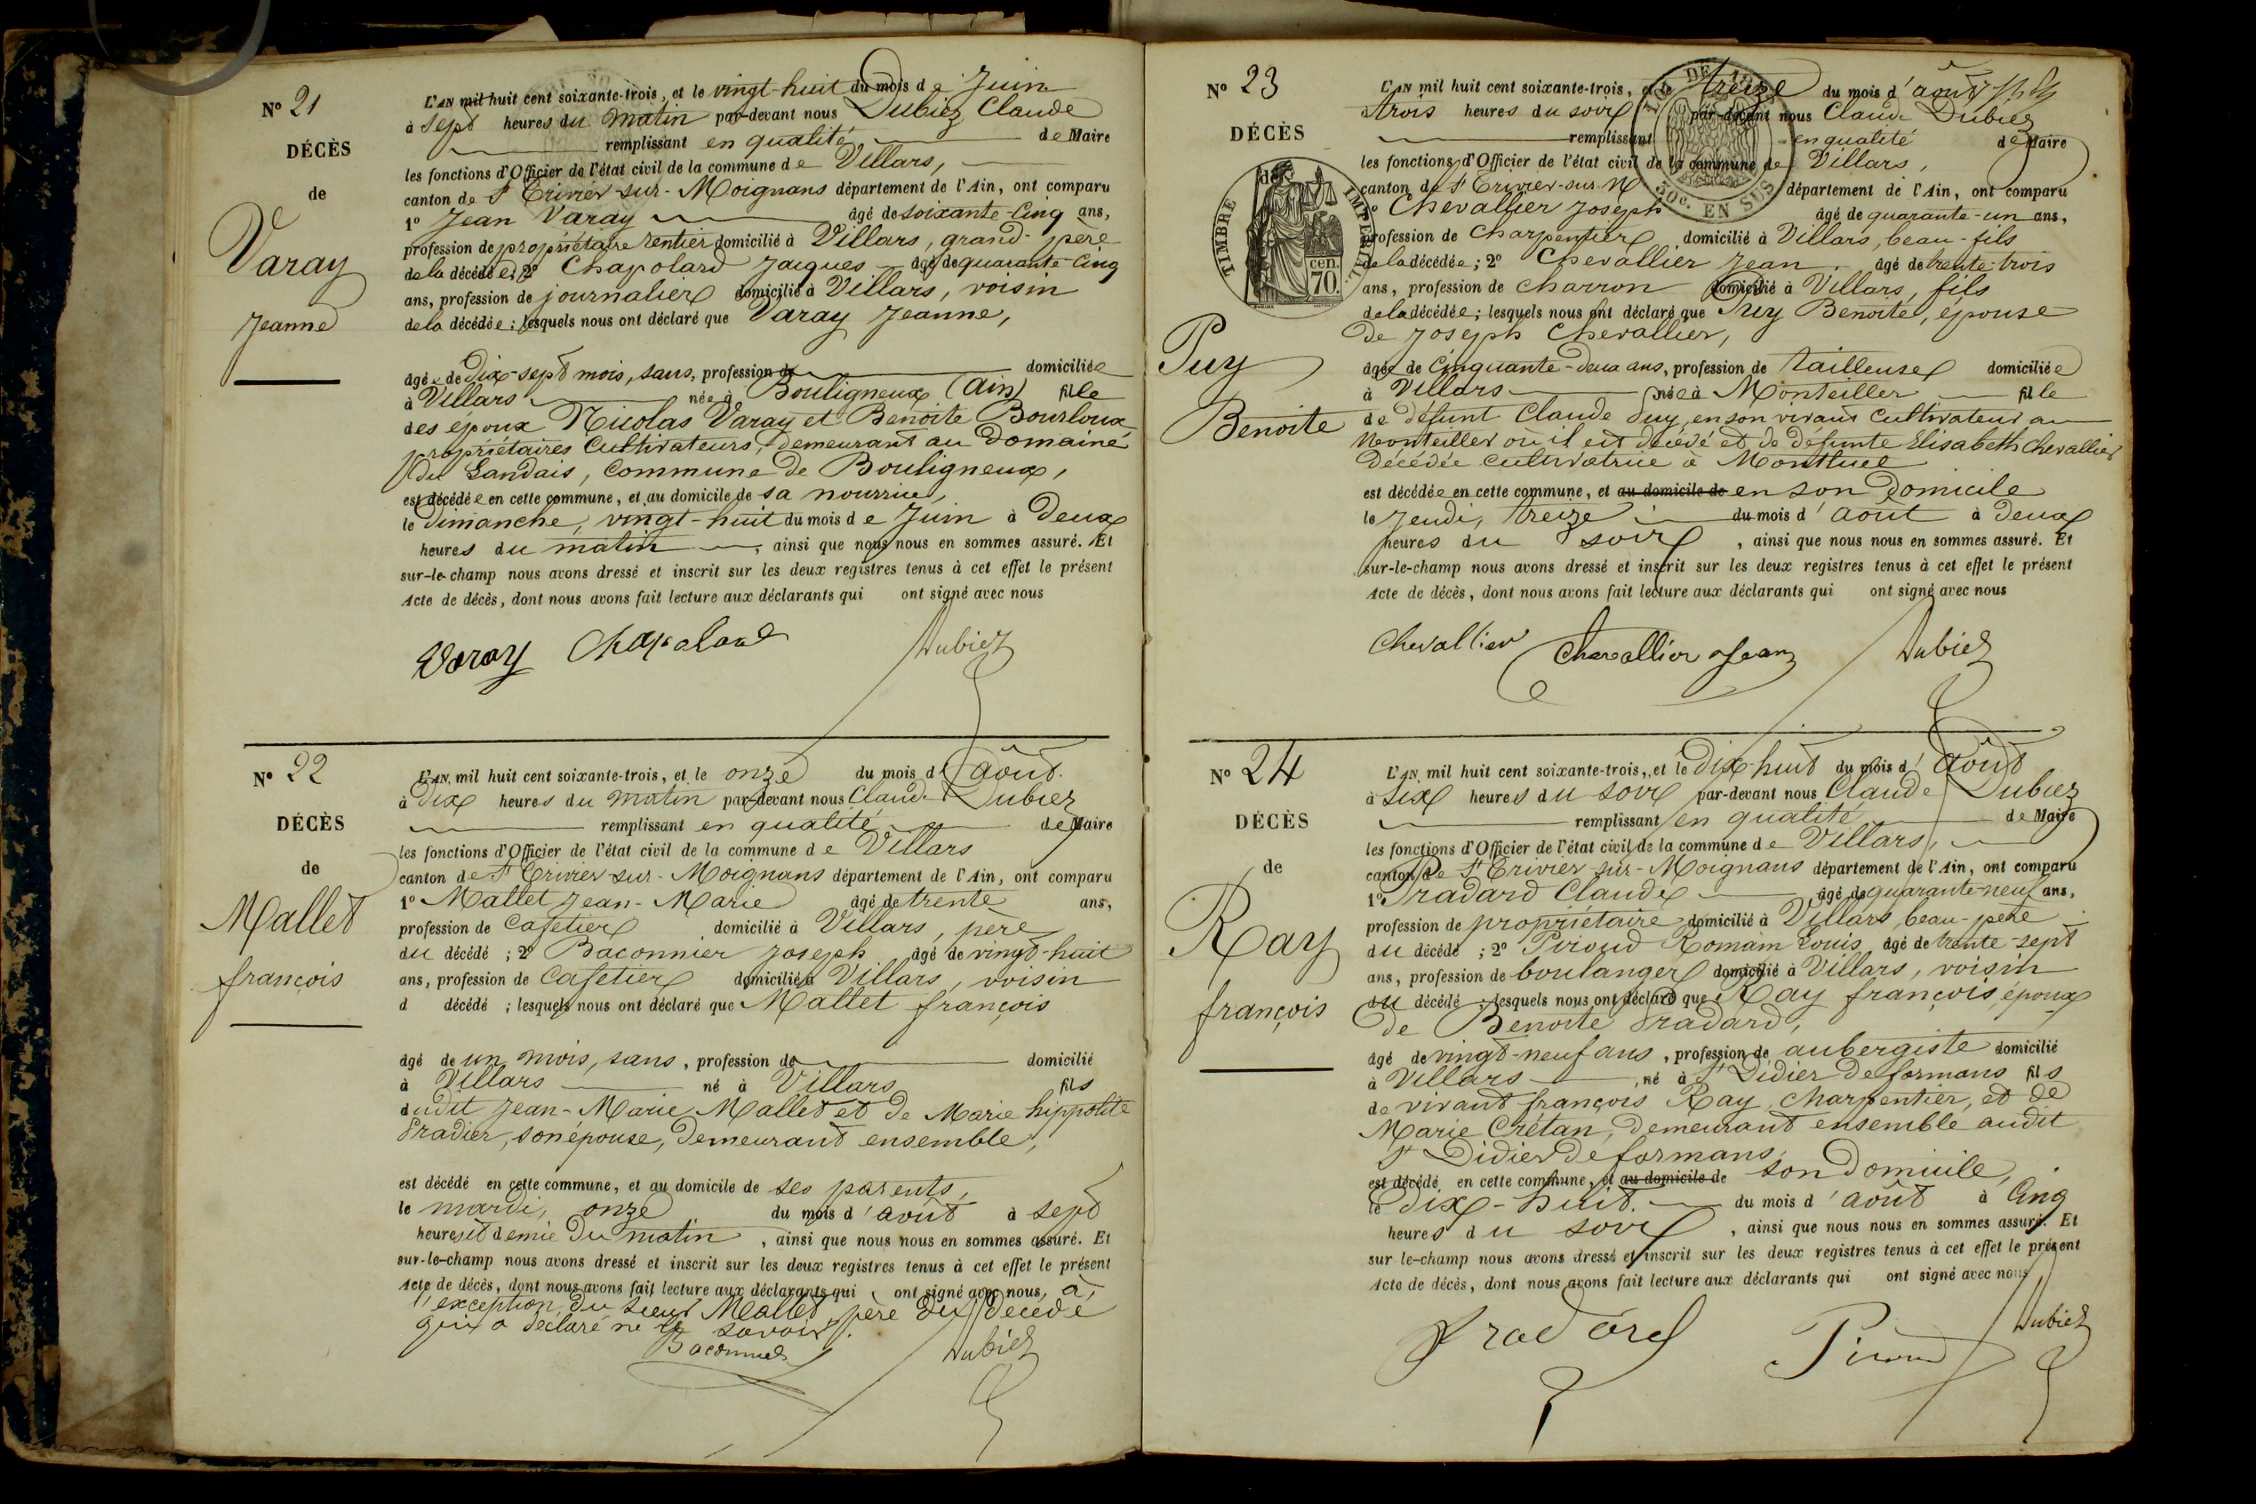 N° 21
DÉCÈS
de
Varay
Jeanne
L'AN mil huit cent soixante-trois, et le vingt-huit du mois de Juin
à sept heures du matin par-devant nous Dubiez Claude
remplissant en qualité de Maire
les fonctions d'Officier de l'état civil de la commune de Villars,
canton de St Trivier-sur-Moignans département de l'Ain, ont comparu
1° Jean Varay âgé de soixante-cinq ans,
profession de propriétaire rentier domicilié à Villars, grand-père
de la décédée; 2° Chapolard Jacques âgé de quarante-cinq
ans, profession de journalier domicilié à Villars, voisin
de la décédée; lesquels nous ont déclaré que Varay Jeanne,
âgée de dix-sept mois, sans, profession de domiciliée
à Villars née à Bouligneux (Ain) fille
des époux Nicolas Varay et Benoite Bourloux
propriétaires cultivateurs, demeurant au domaine
du Landais, commune de Bouligneux,
est décédée en cette commune, et au domicile de sa nourrice,
le Dimanche, vingt-huit du mois de Juin à deux
heures du matin, ainsi que nous nous en sommes assuré. Et
sur-le-champ nous avons dressé et inscrit sur les deux registres tenus à cet effet le présent
Acte de décès, dont nous avons fait lecture aux déclarants qui ont signé avec nous
Varay Chapolard Dubiez
N° 22
DÉCÈS
de
Mallet
françois
L'AN mil huit cent soixante-trois, et le onze du mois d'août
à dix heures du matin par-devant nous Claude Dubiez
remplissant en qualité de Maire
les fonctions d'Officier de l'état civil de la commune de Villars
canton de St Trivier-sur-Moignans département de l'Ain, ont comparu
1° Mallet Jean-Marie âgé de trente ans,
profession de cafetier domicilié à Villars, père
du décédé; 2° Baconnier Joseph âgé de vingt-huit
ans, profession de cafetier domicilié à Villars, voisin
d décédé; lesquels nous ont déclaré que Mallet françois
âgé de un mois, sans, profession de domicilié
à Villars né à Villars fils
dudit Jean-Marie Mallet et de Marie hippolite
Pradier, son épouse, demeurant ensemble,
est décédé en cette commune, et au domicile de ses parents,
le mardi, onze du mois d'août à sept
heures et demie du matin, ainsi que nous nous en sommes assuré. Et
sur-le-champ nous avons dressé et inscrit sur les deux registres tenus à cet effet le présent
Acte de décès, dont nous avons fait lecture aux déclarants qui ont signé avec nous, à
l'exception du sieur Mallet, père du décédé
qui a déclaré ne le savoir.
Baconnier Dubiez
N° 23
DÉCÈS
de
TIMBRE IMPÉRIAL
70 cen.
Puy
Benoite
L'AN mil huit cent soixante-trois, et le treize du mois d'août
à trois heures du soir par-devant nous Claude Dubiez
remplissant en qualité de Maire
les fonctions d'Officier de l'état civil de la commune de Villars,
canton de St Trivier-sur-M département de l'Ain, ont comparu
50c. EN SUS
1° Chevallier Joseph âgé de quarante-un ans,
profession de charpentier domicilié à Villars, beau-fils
de la décédée; 2° Chevallier Jean âgé de trente-trois
ans, profession de charron domicilié à Villars, fils
de la décédée; lesquels nous ont déclaré que Puy Benoite, épouse
de Joseph Chevallier,
âgée de cinquante-deux ans, profession de tailleuse domiciliée
à Villars née à Monteiller fille
de défunt Claude Puy, en son vivant cultivateur au
Monteiller où il est décédé et de défunte Elisabeth Chevallier
décédée cultivatrice à Montluel
est décédée en cette commune, et au domicile de en son domicile
le jeudi, treize du mois d'août à deux
heures du soir, ainsi que nous nous en sommes assuré. Et
sur-le-champ nous avons dressé et inscrit sur les deux registres tenus à cet effet le présent
Acte de décès, dont nous avons fait lecture aux déclarants qui ont signé avec nous
Chevallier Chevallier Jean Dubiez
N° 24
DÉCÈS
de
Ray
françois
L'AN mil huit cent soixante-trois, et le dix-huit du mois d'août
à six heures du soir par-devant nous Claude Dubiez
remplissant en qualité de Maire
les fonctions d'Officier de l'état civil de la commune de Villars,
canton de St Trivier-sur-Moignans département de l'Ain, ont comparu
1° Pradard Claude âgé de quarante-neuf ans,
profession de propriétaire domicilié à Villars, beau-père
du décédé; 2° Piroud Romain Louis âgé de trente-sept
ans, profession de boulanger domicilié à Villars, voisin
du décédé; lesquels nous ont déclaré que Ray françois époux
de Benoite Pradard,
âgé de vingt-neuf ans, profession de aubergiste domicilié
à Villars, né à St Didier de formans fils
de vivant françois Ray, charpentier, et de
Marie Crétan, demeurant ensemble audit
St Didier de formans,
est décédé en cette commune, et au domicile de son domicile,
le dix-huit du mois d'août à cinq
heures du soir, ainsi que nous nous en sommes assuré. Et
sur le-champ nous avons dressé et inscrit sur les deux registres tenus à cet effet le présent
Acte de décès, dont nous avons fait lecture aux déclarants qui ont signé avec nous
Pradard Piroud Dubiez